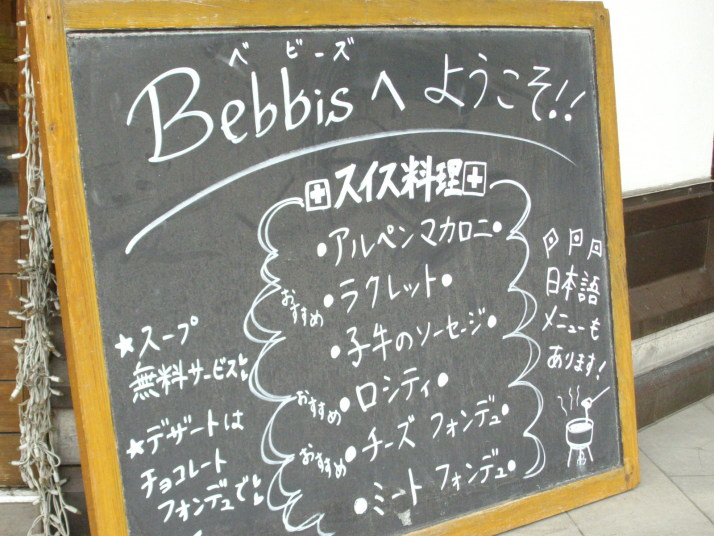 ベビーズ
Bebbisへようこそ!!
スイス料理
・アルペンマカロニ・
おすすめ・ラクレット・
・子牛のソーセージ・
・ロシティ・
おすすめ・チーズ フォンデュ・
おすすめ・ミート フォンデュ・
★スープ
無料サービス!!
★デザートは
チョコレート
フォンデュで!!
日本語
メニューも
あります!